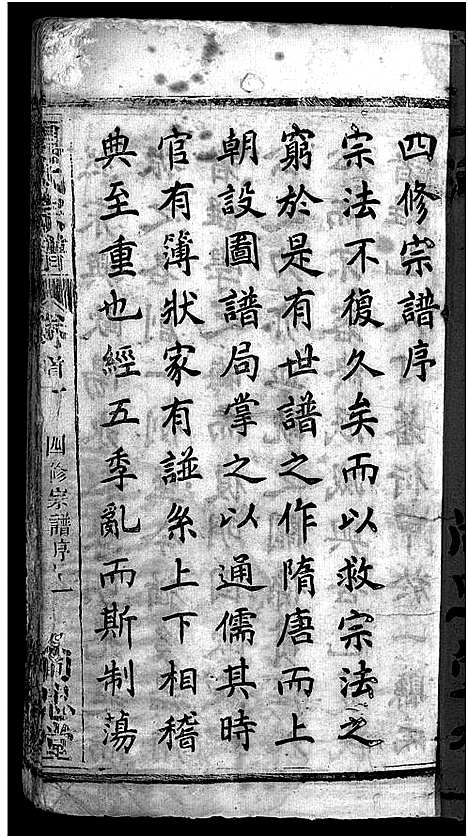 四修宗譜序
宗法不復久矣而以救宗法之
窮於是有世譜之作隋唐而上
朝設圖譜局掌之以通儒其時
官有簿狀家有諩系上下相稽
典至重也經五季亂而斯制蕩
卷首一
四修宗譜序